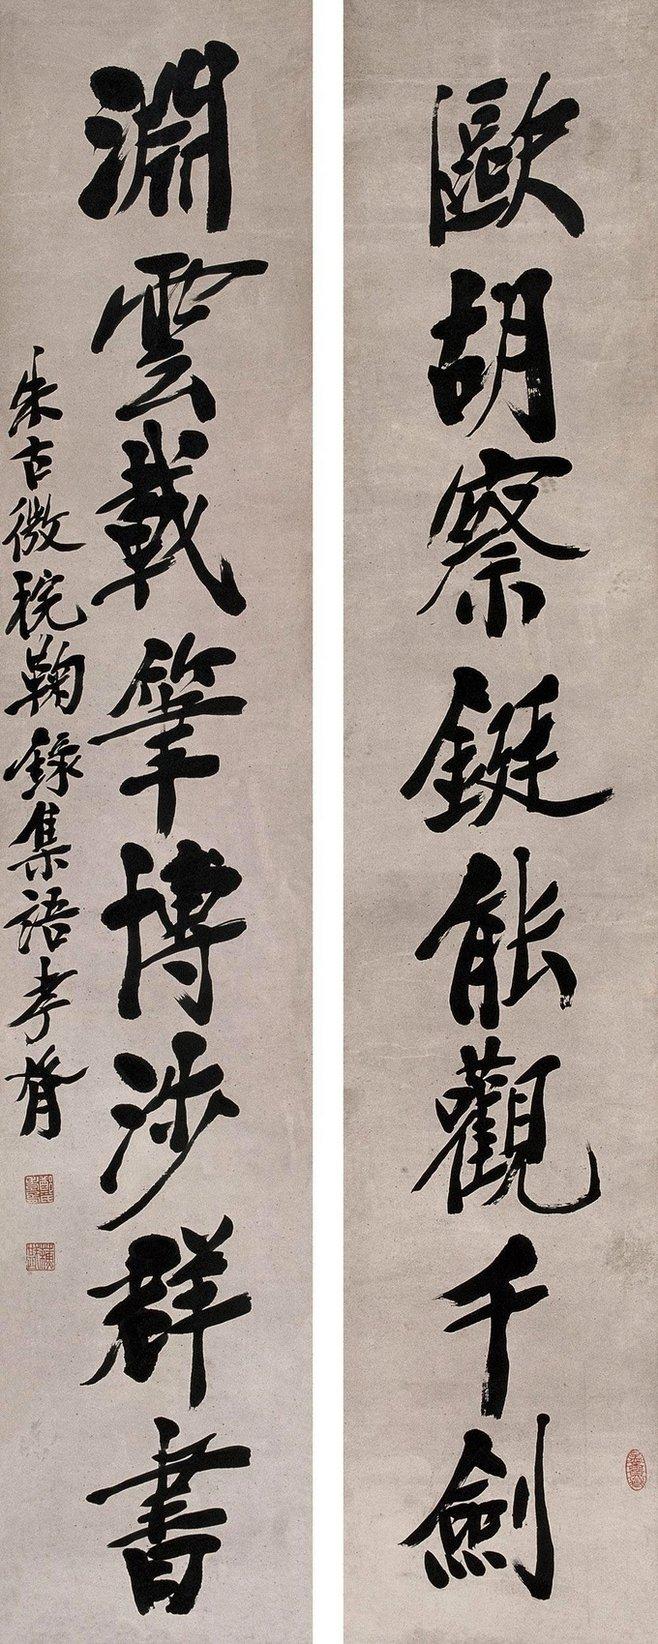 歐胡察鋌能觀千劍
淵雲載筆博涉群書
朱古微稅鞠錄集語孝胥